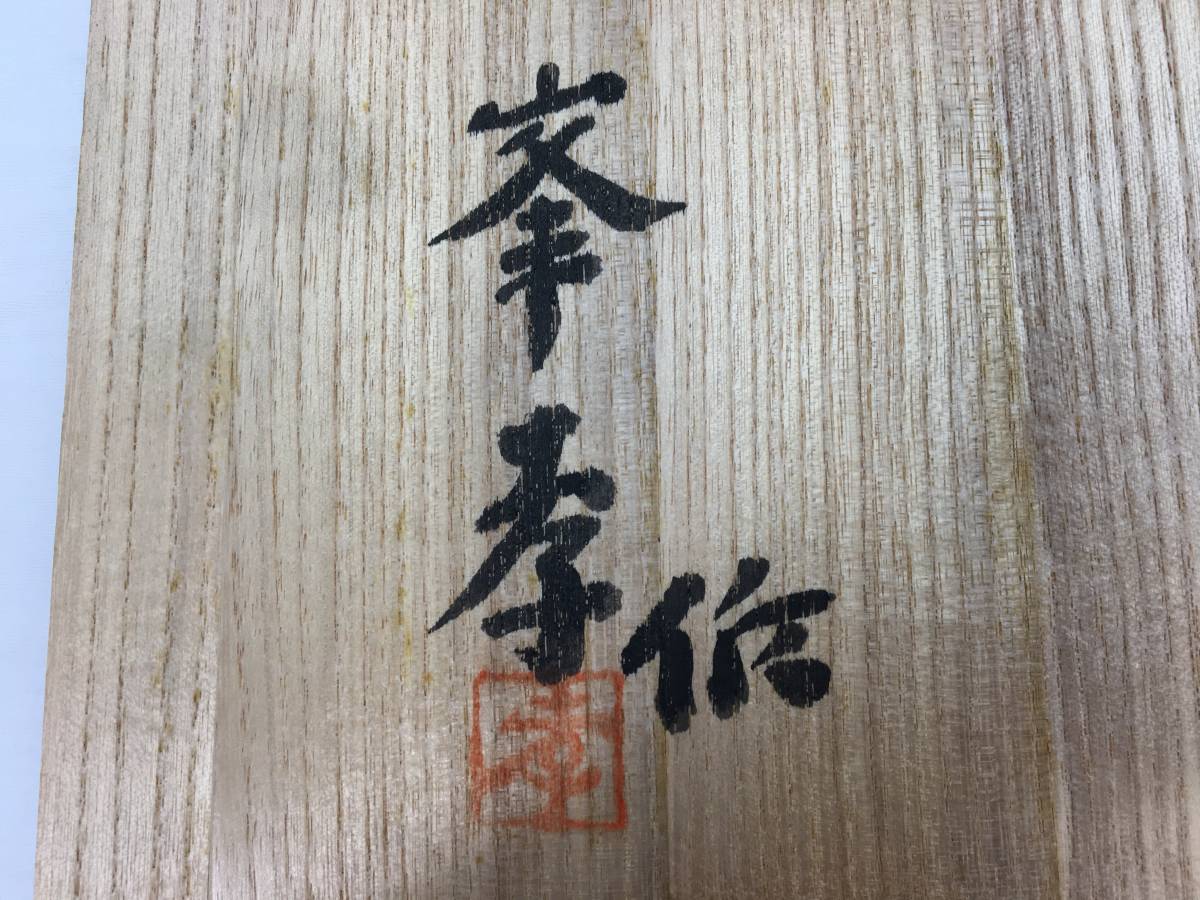 峯孝作